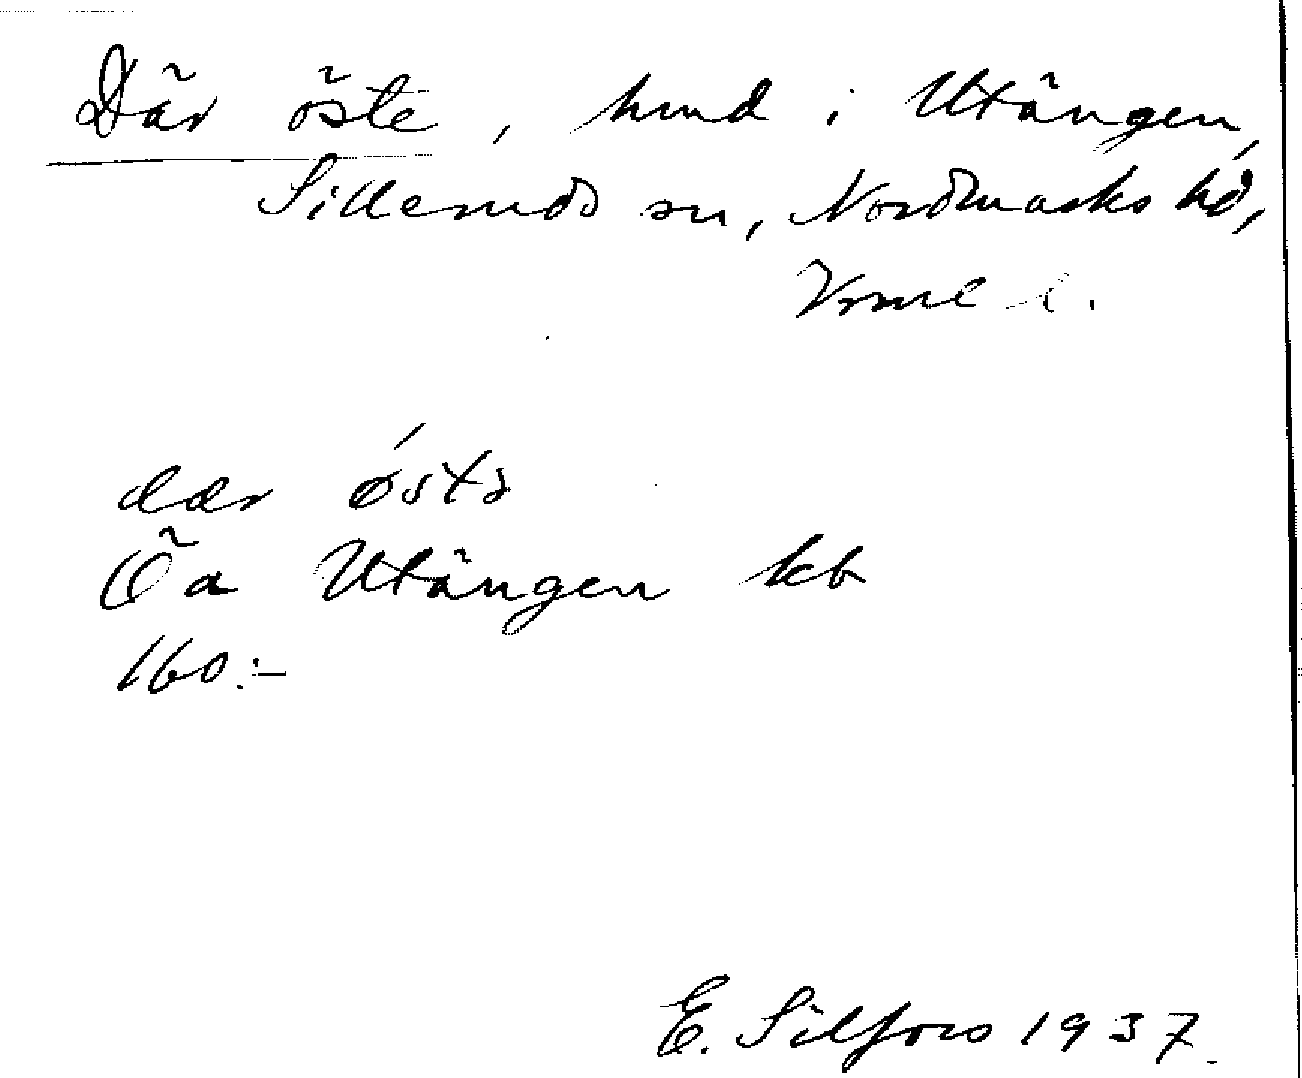 Där öste, hmd i Utängen,
Silleruds sn, Nordmarks hd,
Vrml l.
dær östə
Öa Utängen kb
160:-
E. Silfors 1937.